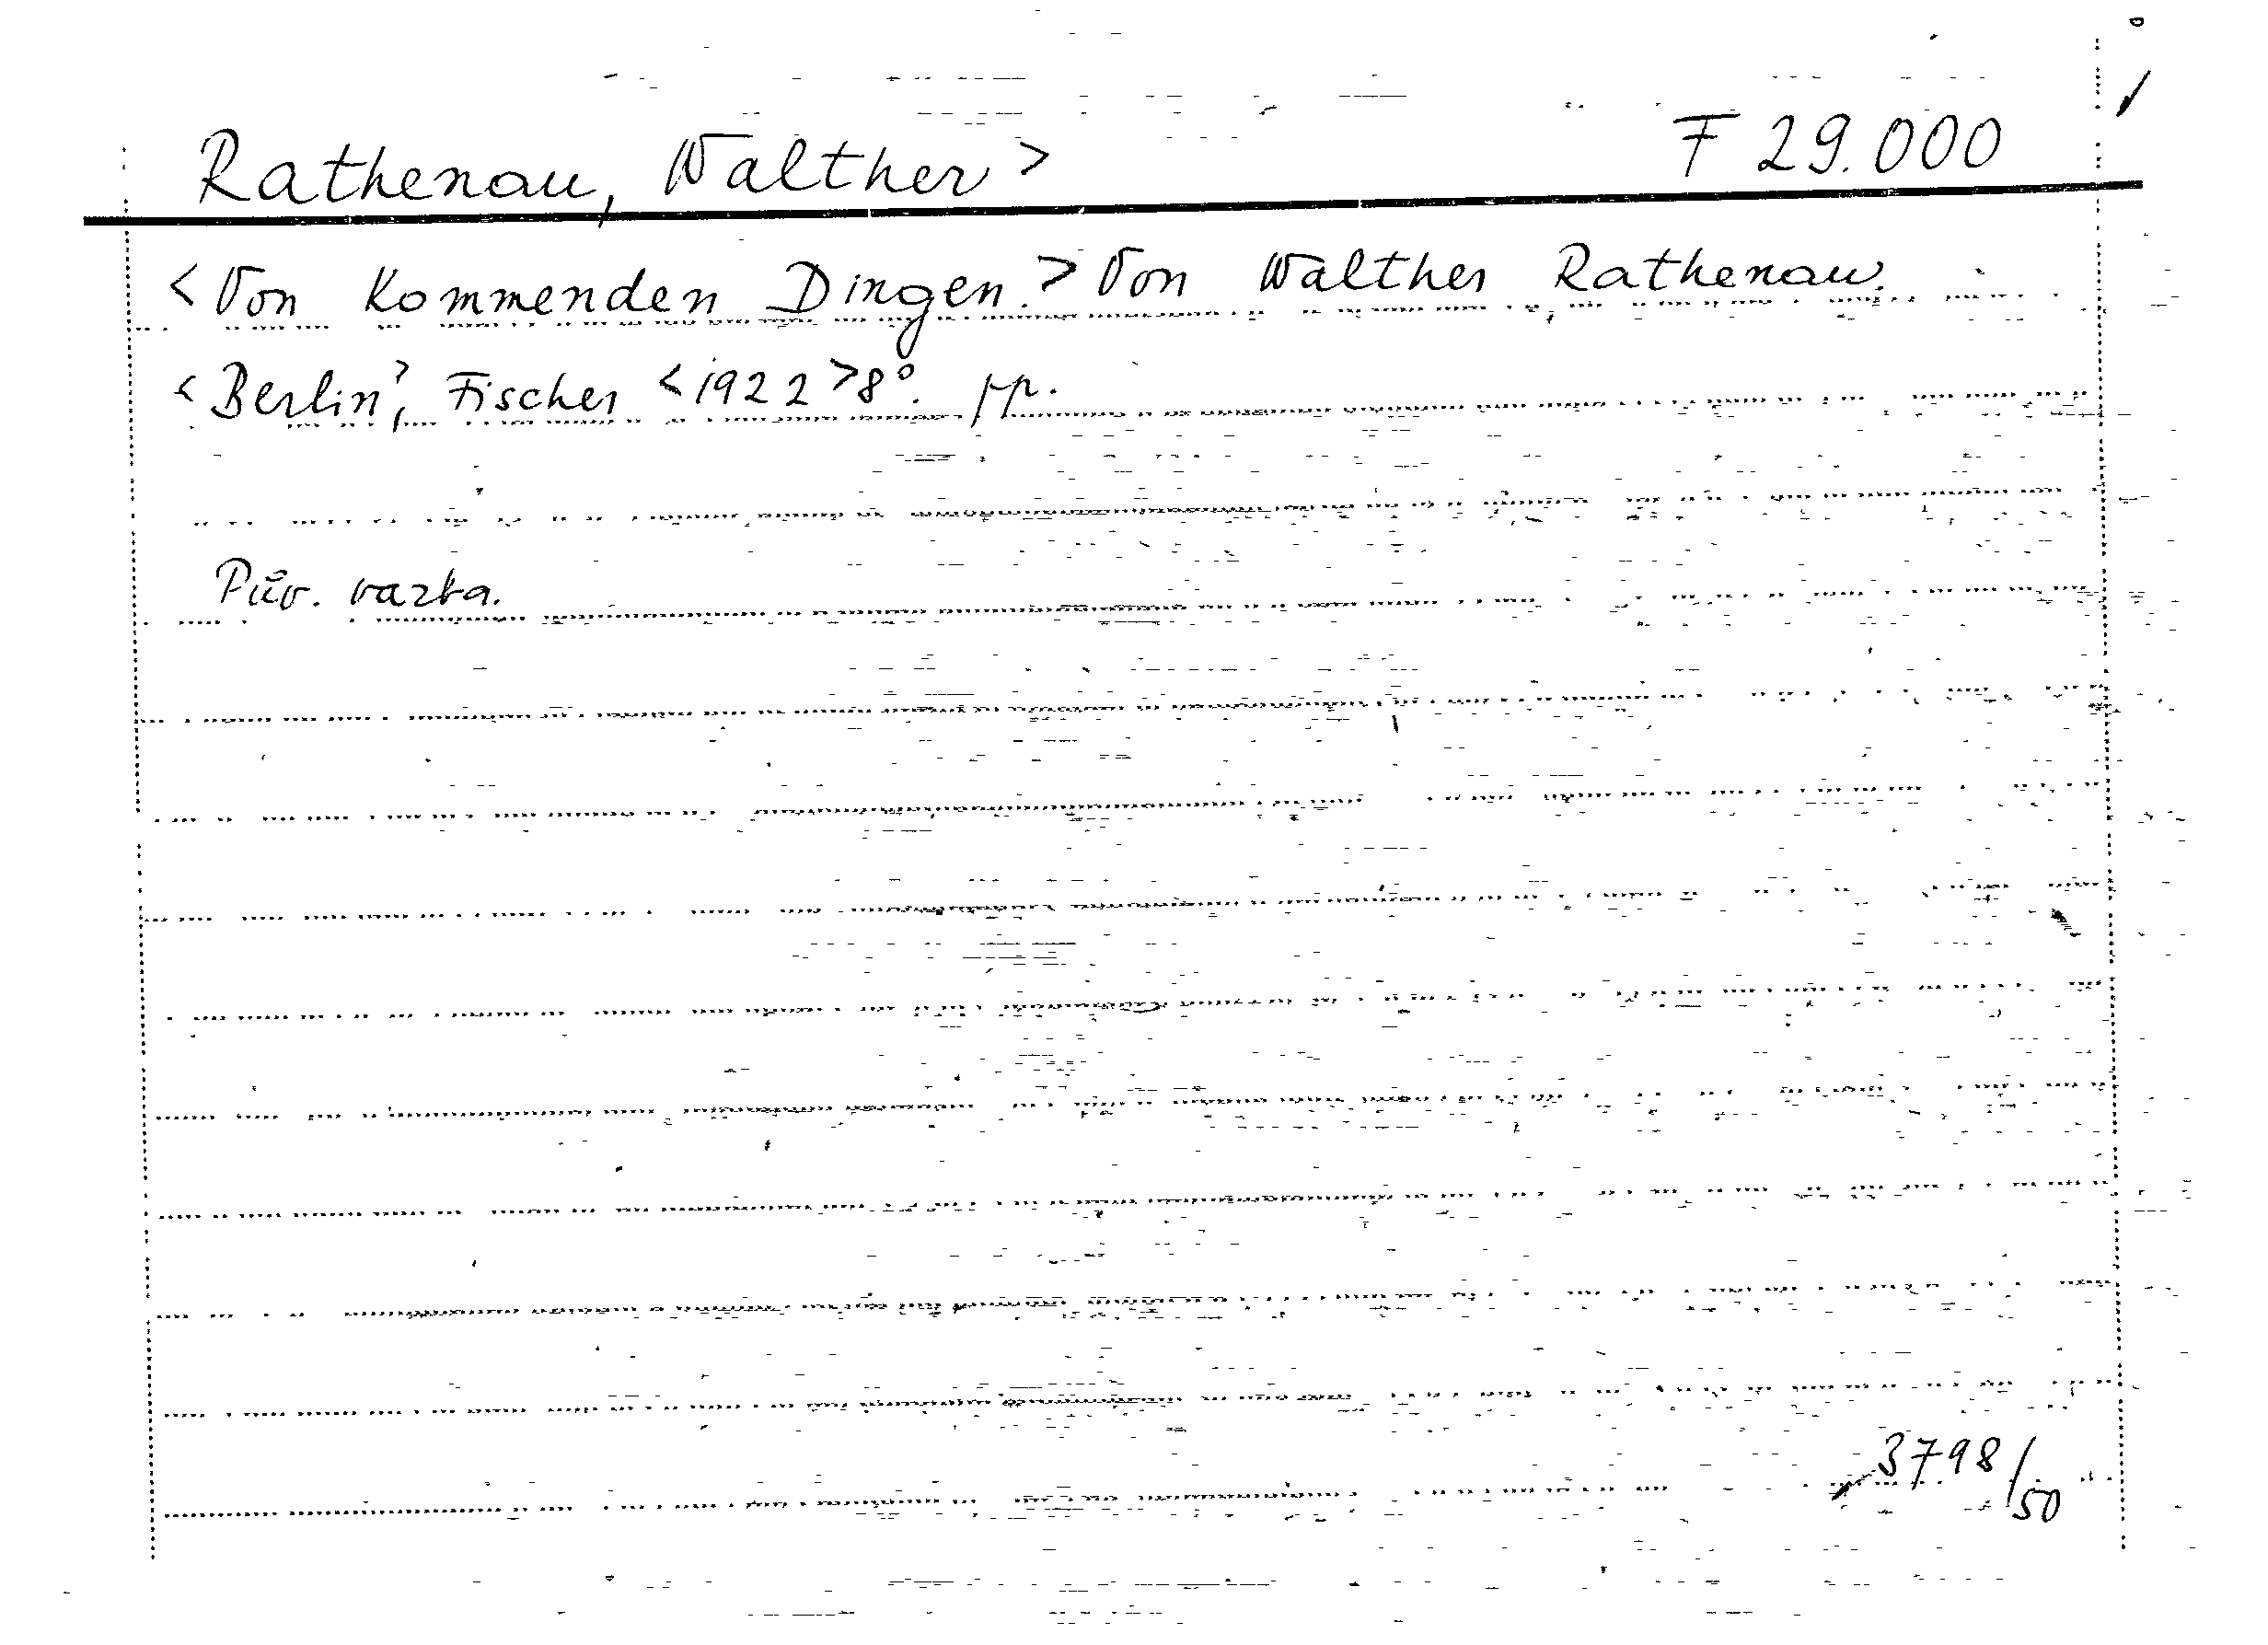 Rathenau, Walther > F 29.000
<Von Kommenden Dingen.> Von Walther Rathenau.
<Berlin>, Fischer <1922> 8°. pp.
Pův. vazba.
3798/50